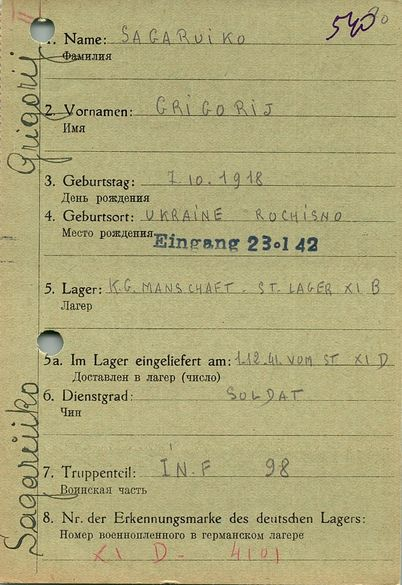 540
1. Name: SAGARUIKO
Фамилия
2. Vornamen: GRIGORIJ
Имя
3. Geburtstag: 7.10.1918
День рождения
4. Geburtsort: UKRAINE ROCHISNO
Место рождения
Eingang 23.1 42
5. Lager: K.G. MANSCHAFT. ST. LAGER XI B
Лагерь
5a. Im Lager eingeliefert am: 1.12.41. VOM ST XI D
Доставлен в лагерь (число)
6. Dienstgrad: SOLDAT
Чин
7. Truppenteil: INF 98
Воинская часть
8. Nr. der Erkennungsmarke des deutschen Lagers:
Номер военнопленного в германском лагере
XI D - 4101
Sagaruiko Grigorij